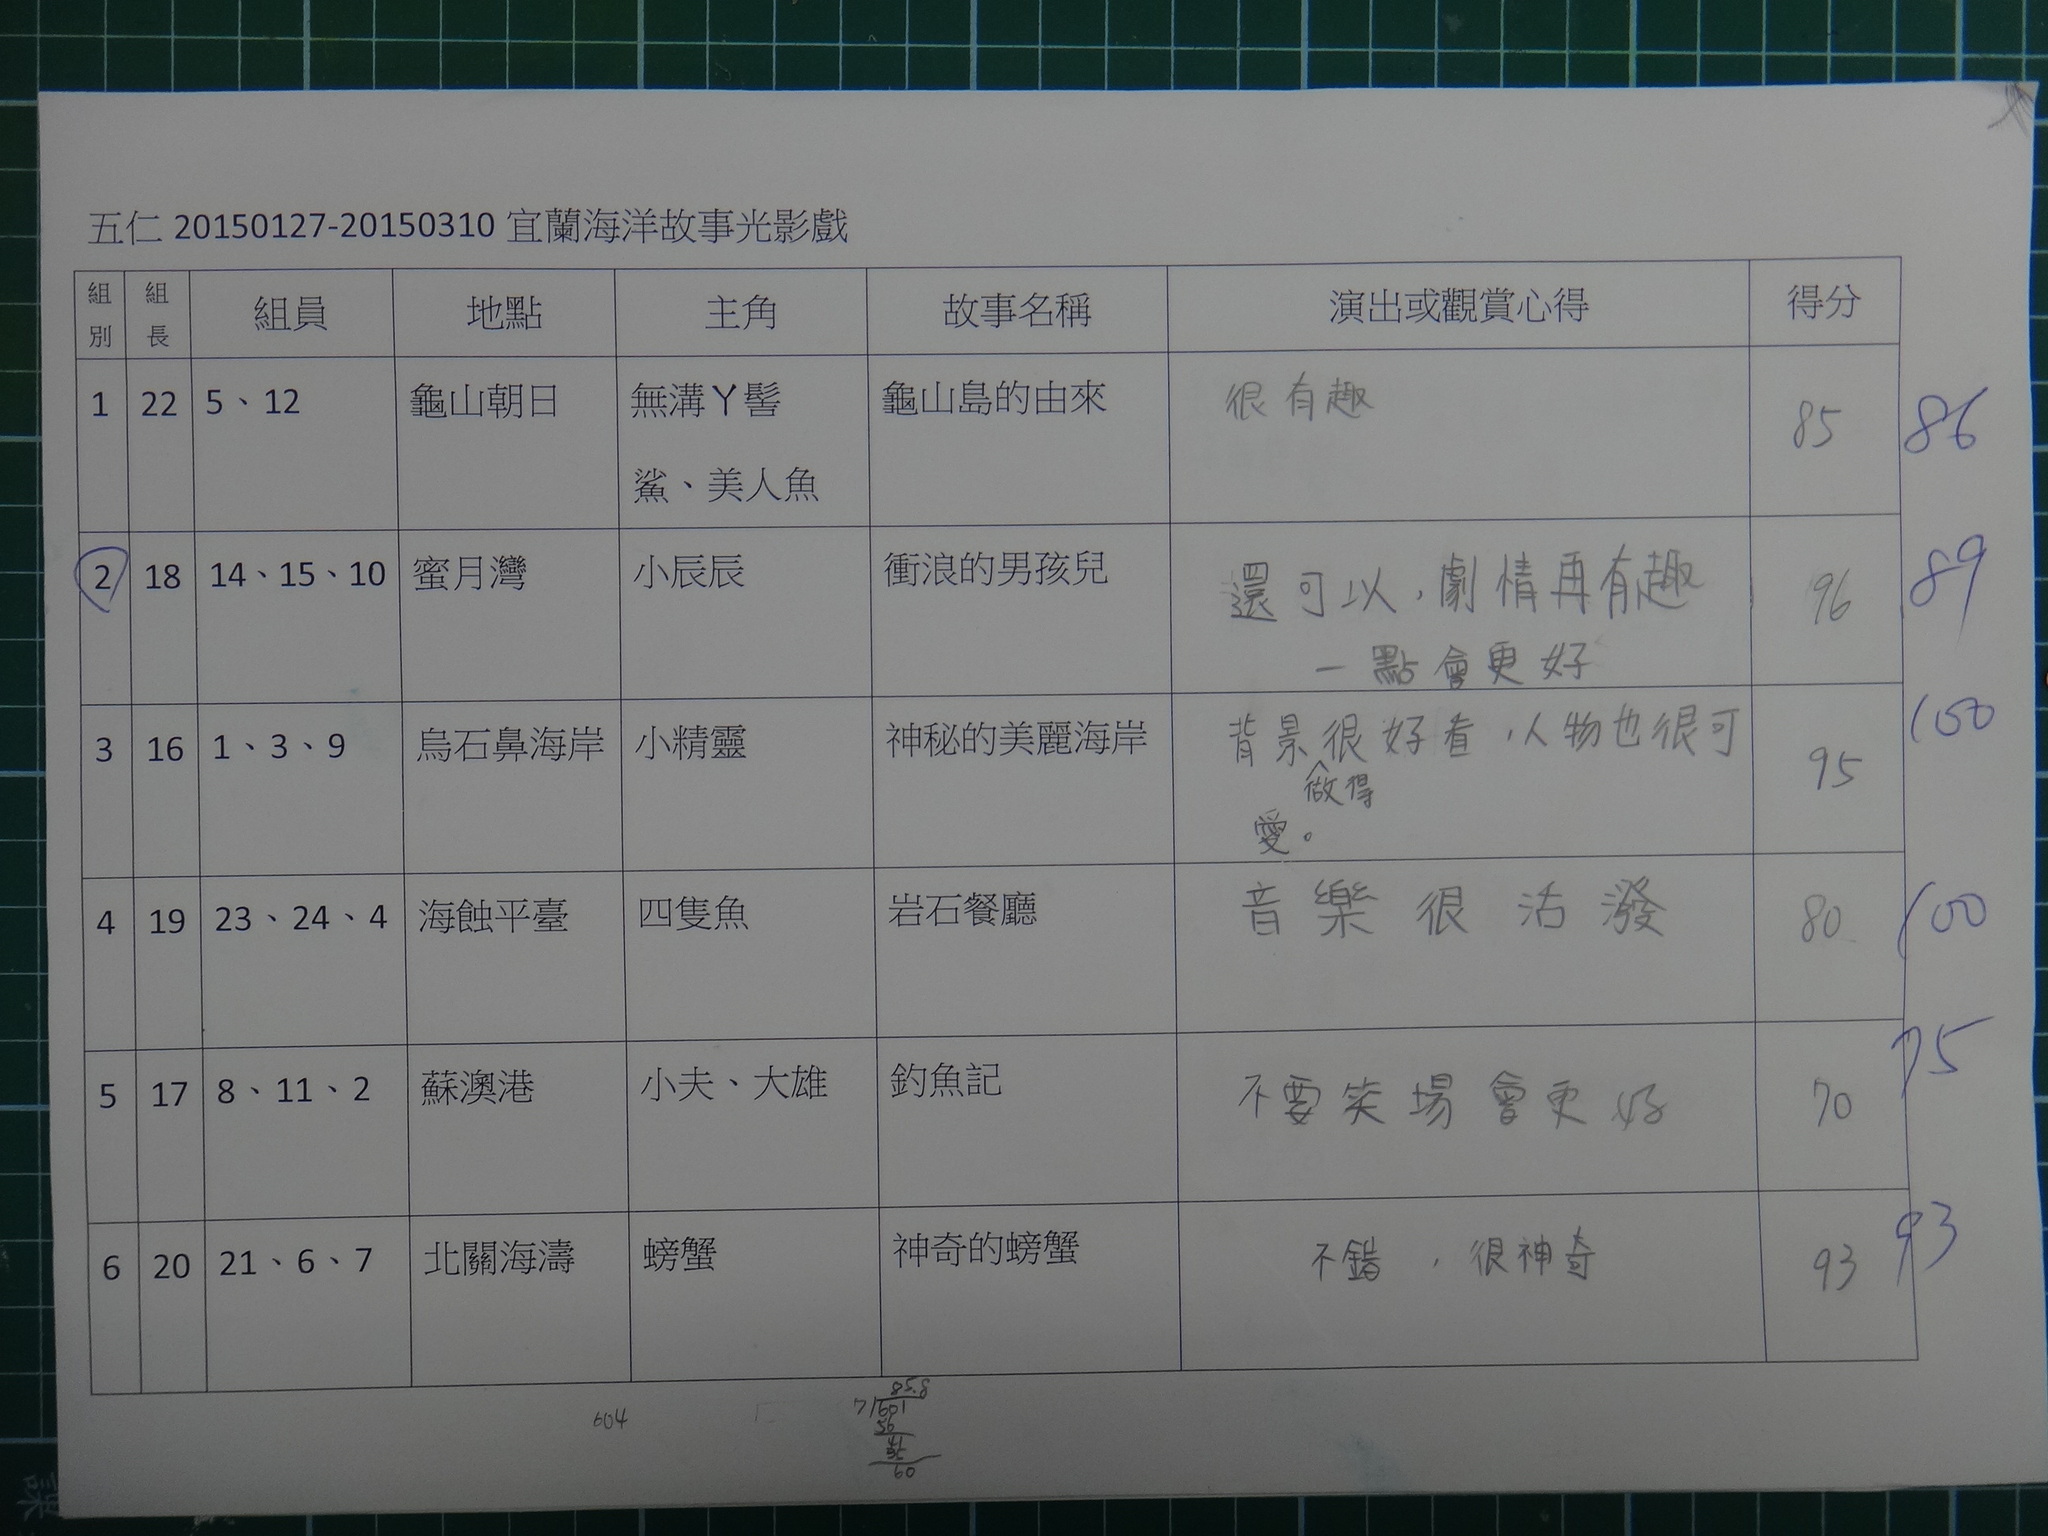 五仁 20150127-20150310 宜蘭海洋故事光影戲
組別 組長 組員 地點 主角 故事名稱 演出或觀賞心得 得分
1 22 5、12 龜山朝日 無溝丫髻 龜山島的由來 很有趣 85 86
鯊、美人魚
2 18 14、15、10 蜜月灣 小辰辰 衝浪的男孩兒 還可以,劇情再有趣 96 89
一點會更好
3 16 1、3、9 烏石鼻海岸 小精靈 神秘的美麗海岸 背景很好看,人物也很可 95 100
做得
愛。
4 19 23、24、4 海蝕平臺 四隻魚 岩石餐廳 音樂很活潑 80 100
5 17 8、11、2 蘇澳港 小夫、大雄 釣魚記 不要笑場會更好 70 75
6 20 21、6、7 北關海濤 螃蟹 神奇的螃蟹 不錯,很神奇 93 93
85.8
604 7 601
56
60